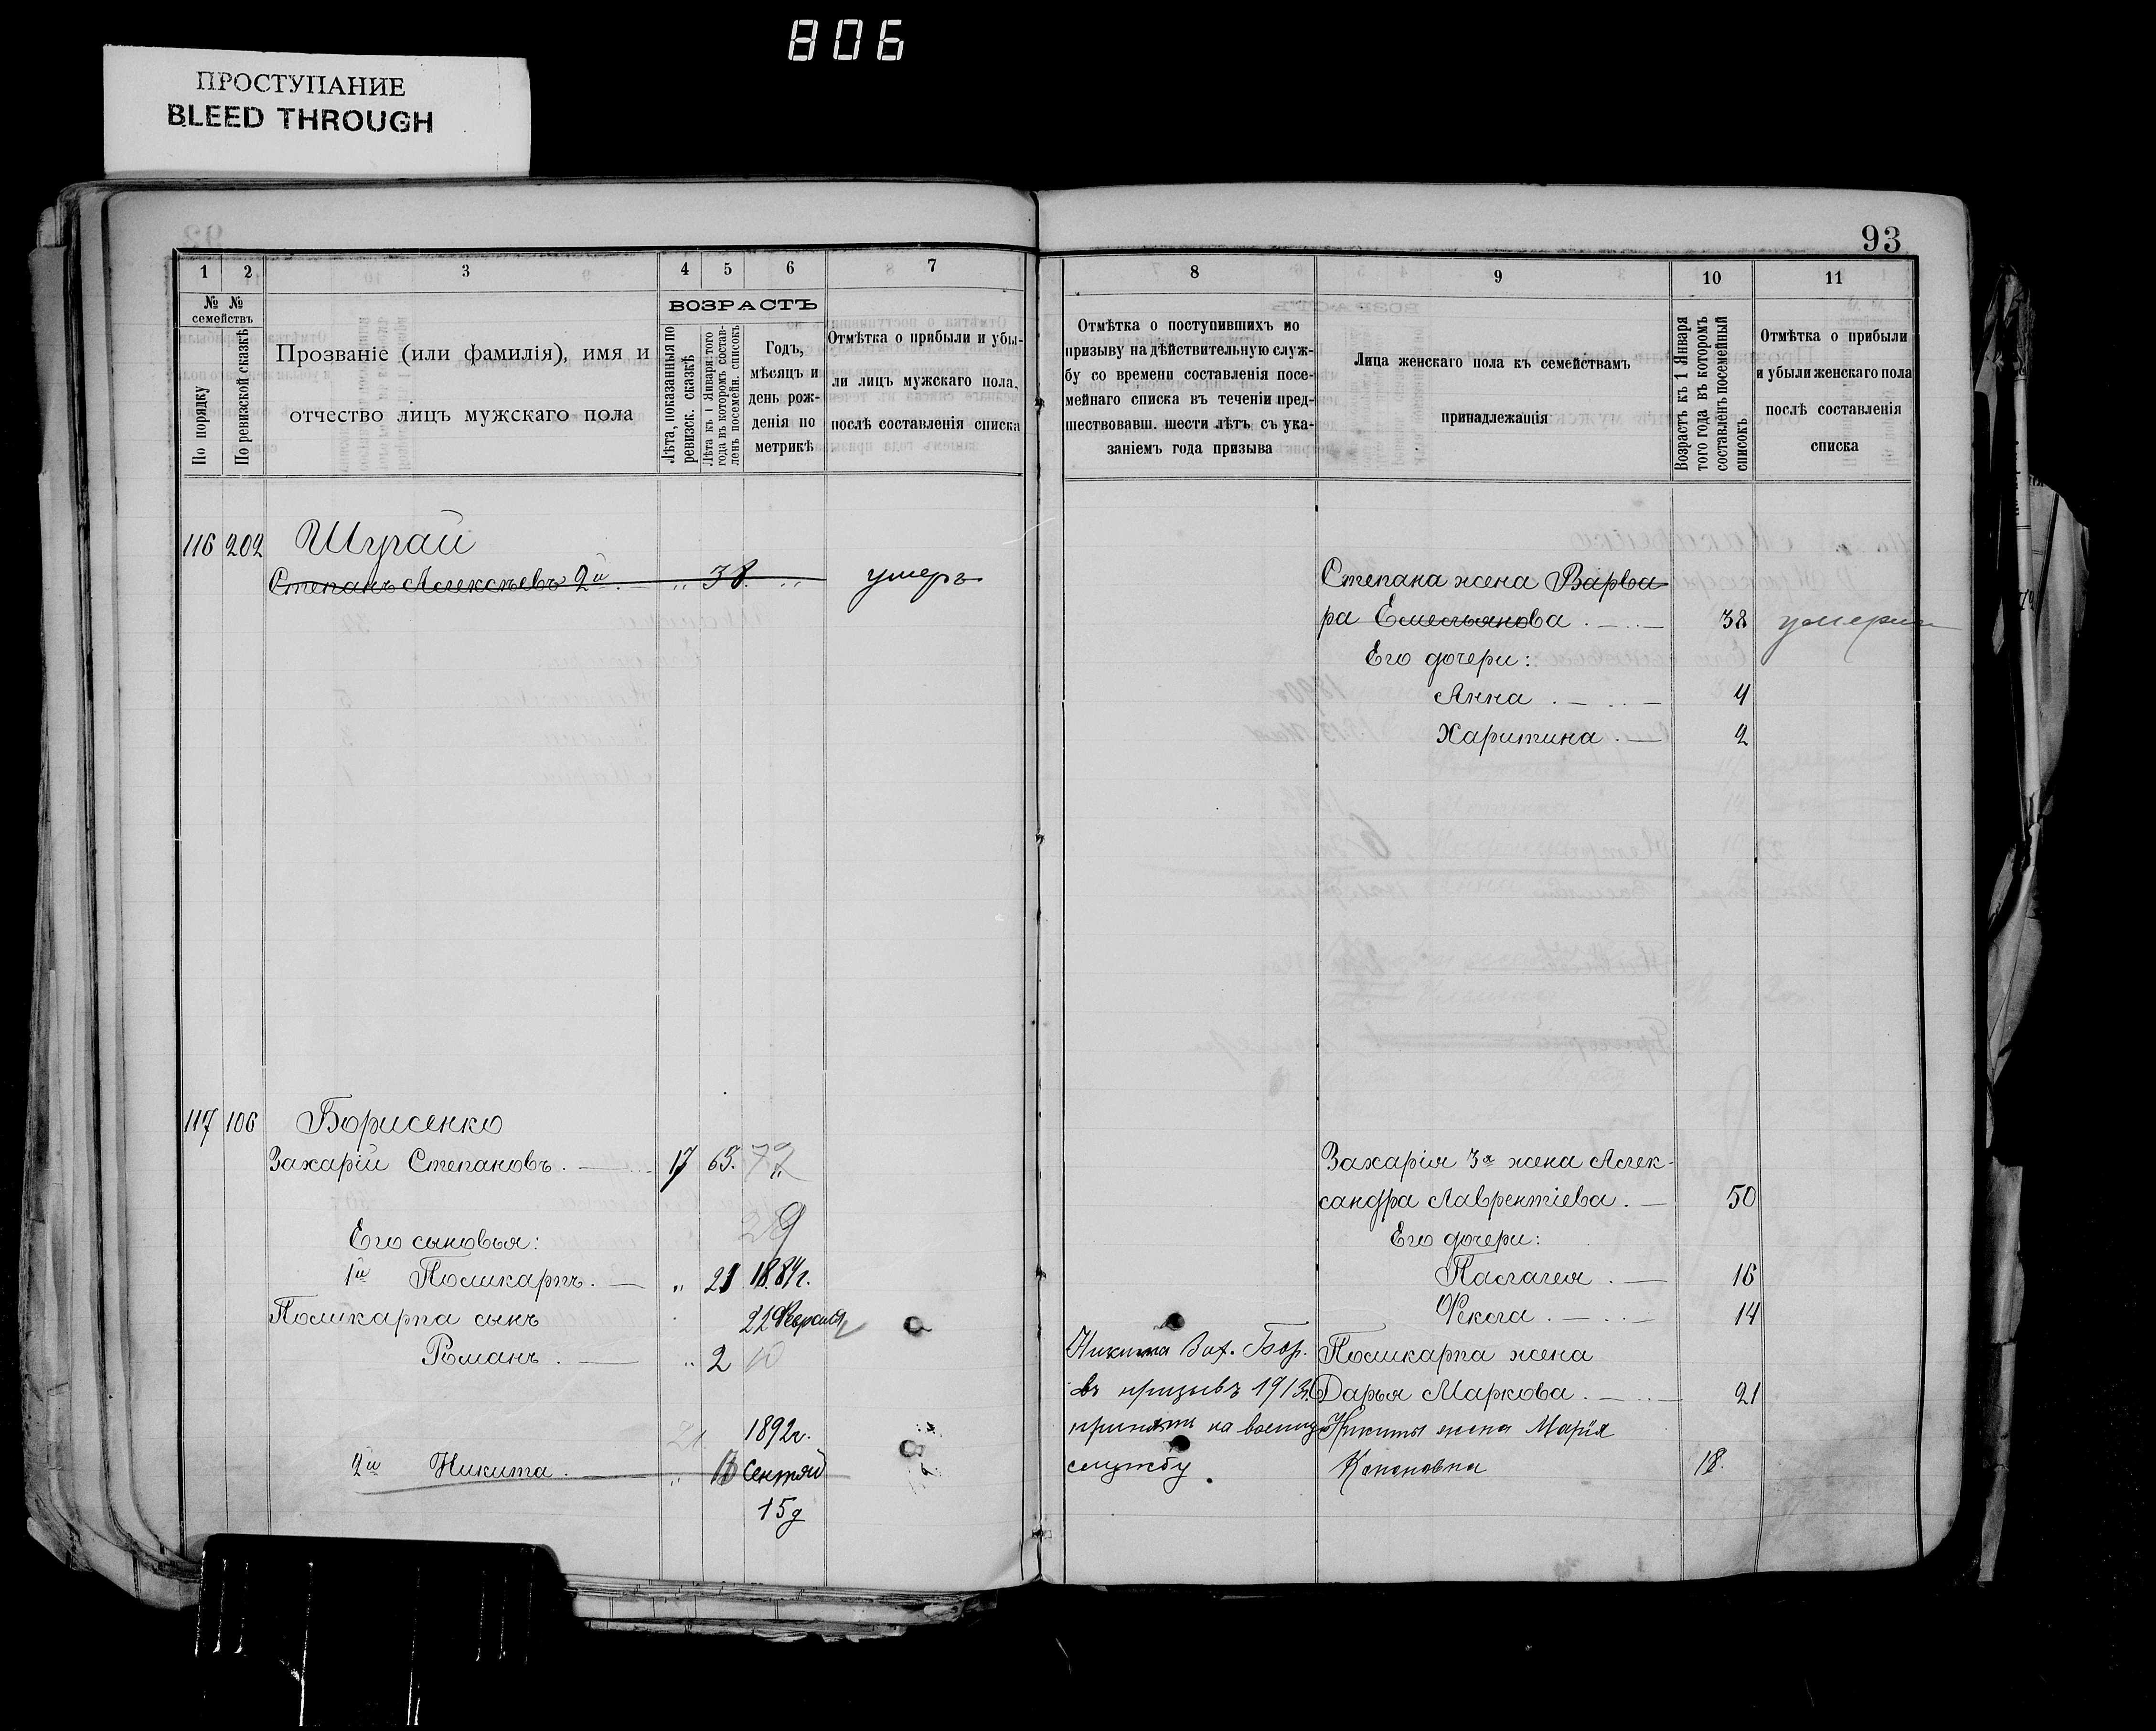 806
ПРОСТУПАНИЕ
BLEED THROUGH
93
1 2 3 4 5 6 7
№ №
семействъ
По порядку
По ревизской сказкѣ
Прозваніе (или фамилія), имя и
отчество лицъ мужскаго пола
ВОЗРАСТЪ
Лѣта, показанныя по
ревизск. сказкѣ
Лѣта къ 1 Января того
года въ которомъ состав-
ленъ посемейн. списокъ
Годъ,
мѣсяцъ и
день рож-
денія по
метрикѣ
Отмѣтка о прибыли и убы-
ли лицъ мужскаго пола,
послѣ составленія списка
116 202 Шугай
Степанъ Алексѣевъ 2й . — „ 38. „ умеръ
117 106 Борисенко
Захарій Степановъ . — 17 65. 72
29
Его сыновья:
1й Поликарпъ . — „ 21 1884г.
Поликарпа сынъ 22 Февраля
Романъ . — „ 2 10
21 1892г.
2й Никита . — „ 13 Сентяб
15 д
8 9 10 11
Отмѣтка о поступившихъ по
призыву на дѣйствительную служ-
бу со времени составленія посе-
мейнаго списка въ теченіи пред-
шествовавш. шести лѣтъ съ ука-
заніемъ года призыва
Лица женскаго пола къ семействамъ
принадлежащія
Возрастъ къ 1 Января
того года въ которомъ
составленъ посемейный
списокъ
Отмѣтка о прибыли
и убыли женскаго пола
послѣ составленія
списка
Степана жена Варва-
ра Емельянова . — 38 умерла
Его дочери:
Анна . — 4
Харитина . — 2
Захарія 3я жена Алек-
сандра Лаврентіева . — 50
Его дочери:
Палагея . — 16
Ѳекла . — 14
Никита Зах. Бор.
въ призывъ 1913г.
принятъ на военную
службу
Поликарпа жена
Дарья Маркова . — 21
Никиты жена Марія
Кононовна 18.